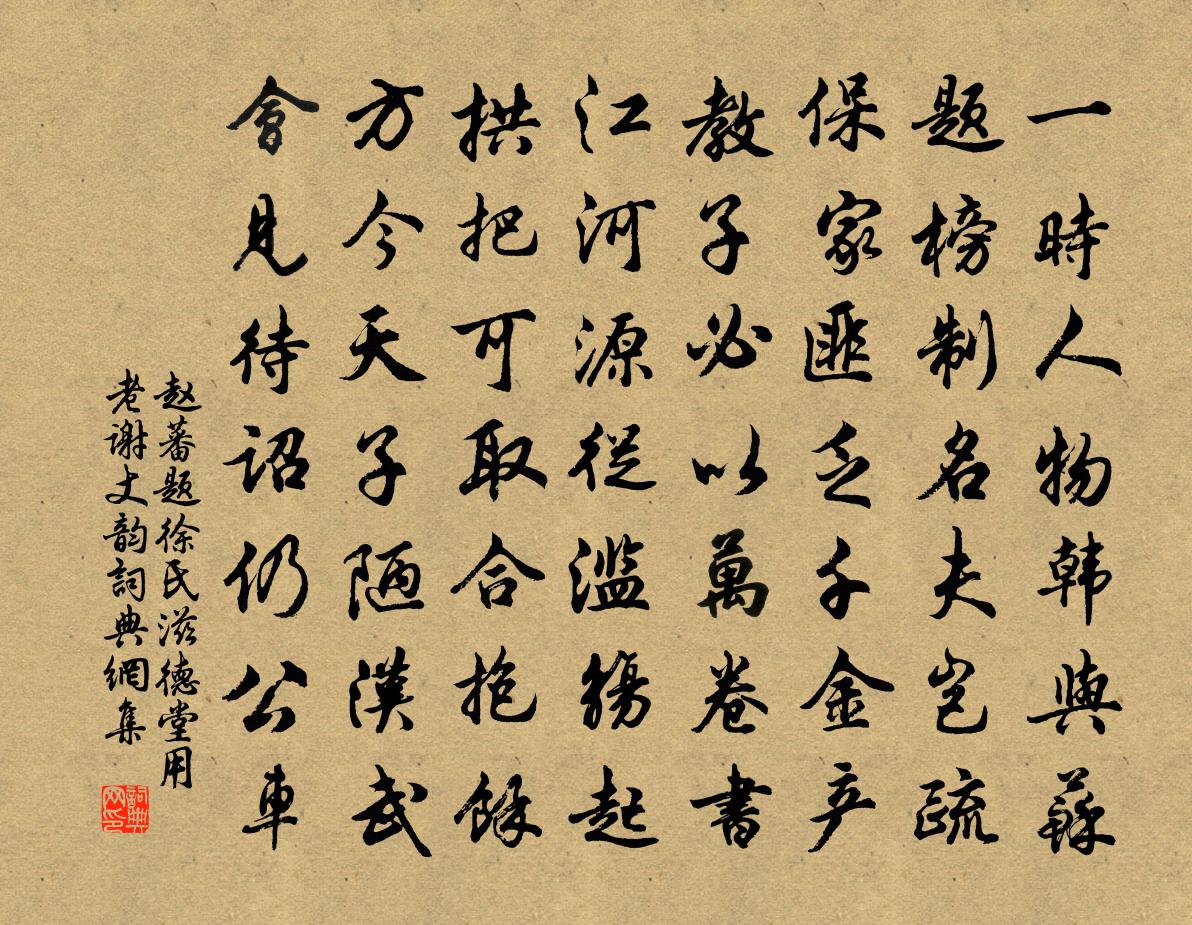 一時人物韩與蘇
题榜制名夫豈疏
保家匪乏千金产
教子必以萬卷書
江河源從滥觞起
拱把可取合抱餘
方今天子陋漢武
會見待诏仍公車
赵蕃题徐民滋德堂用
老谢丈韵詞典網集
詞典
网印